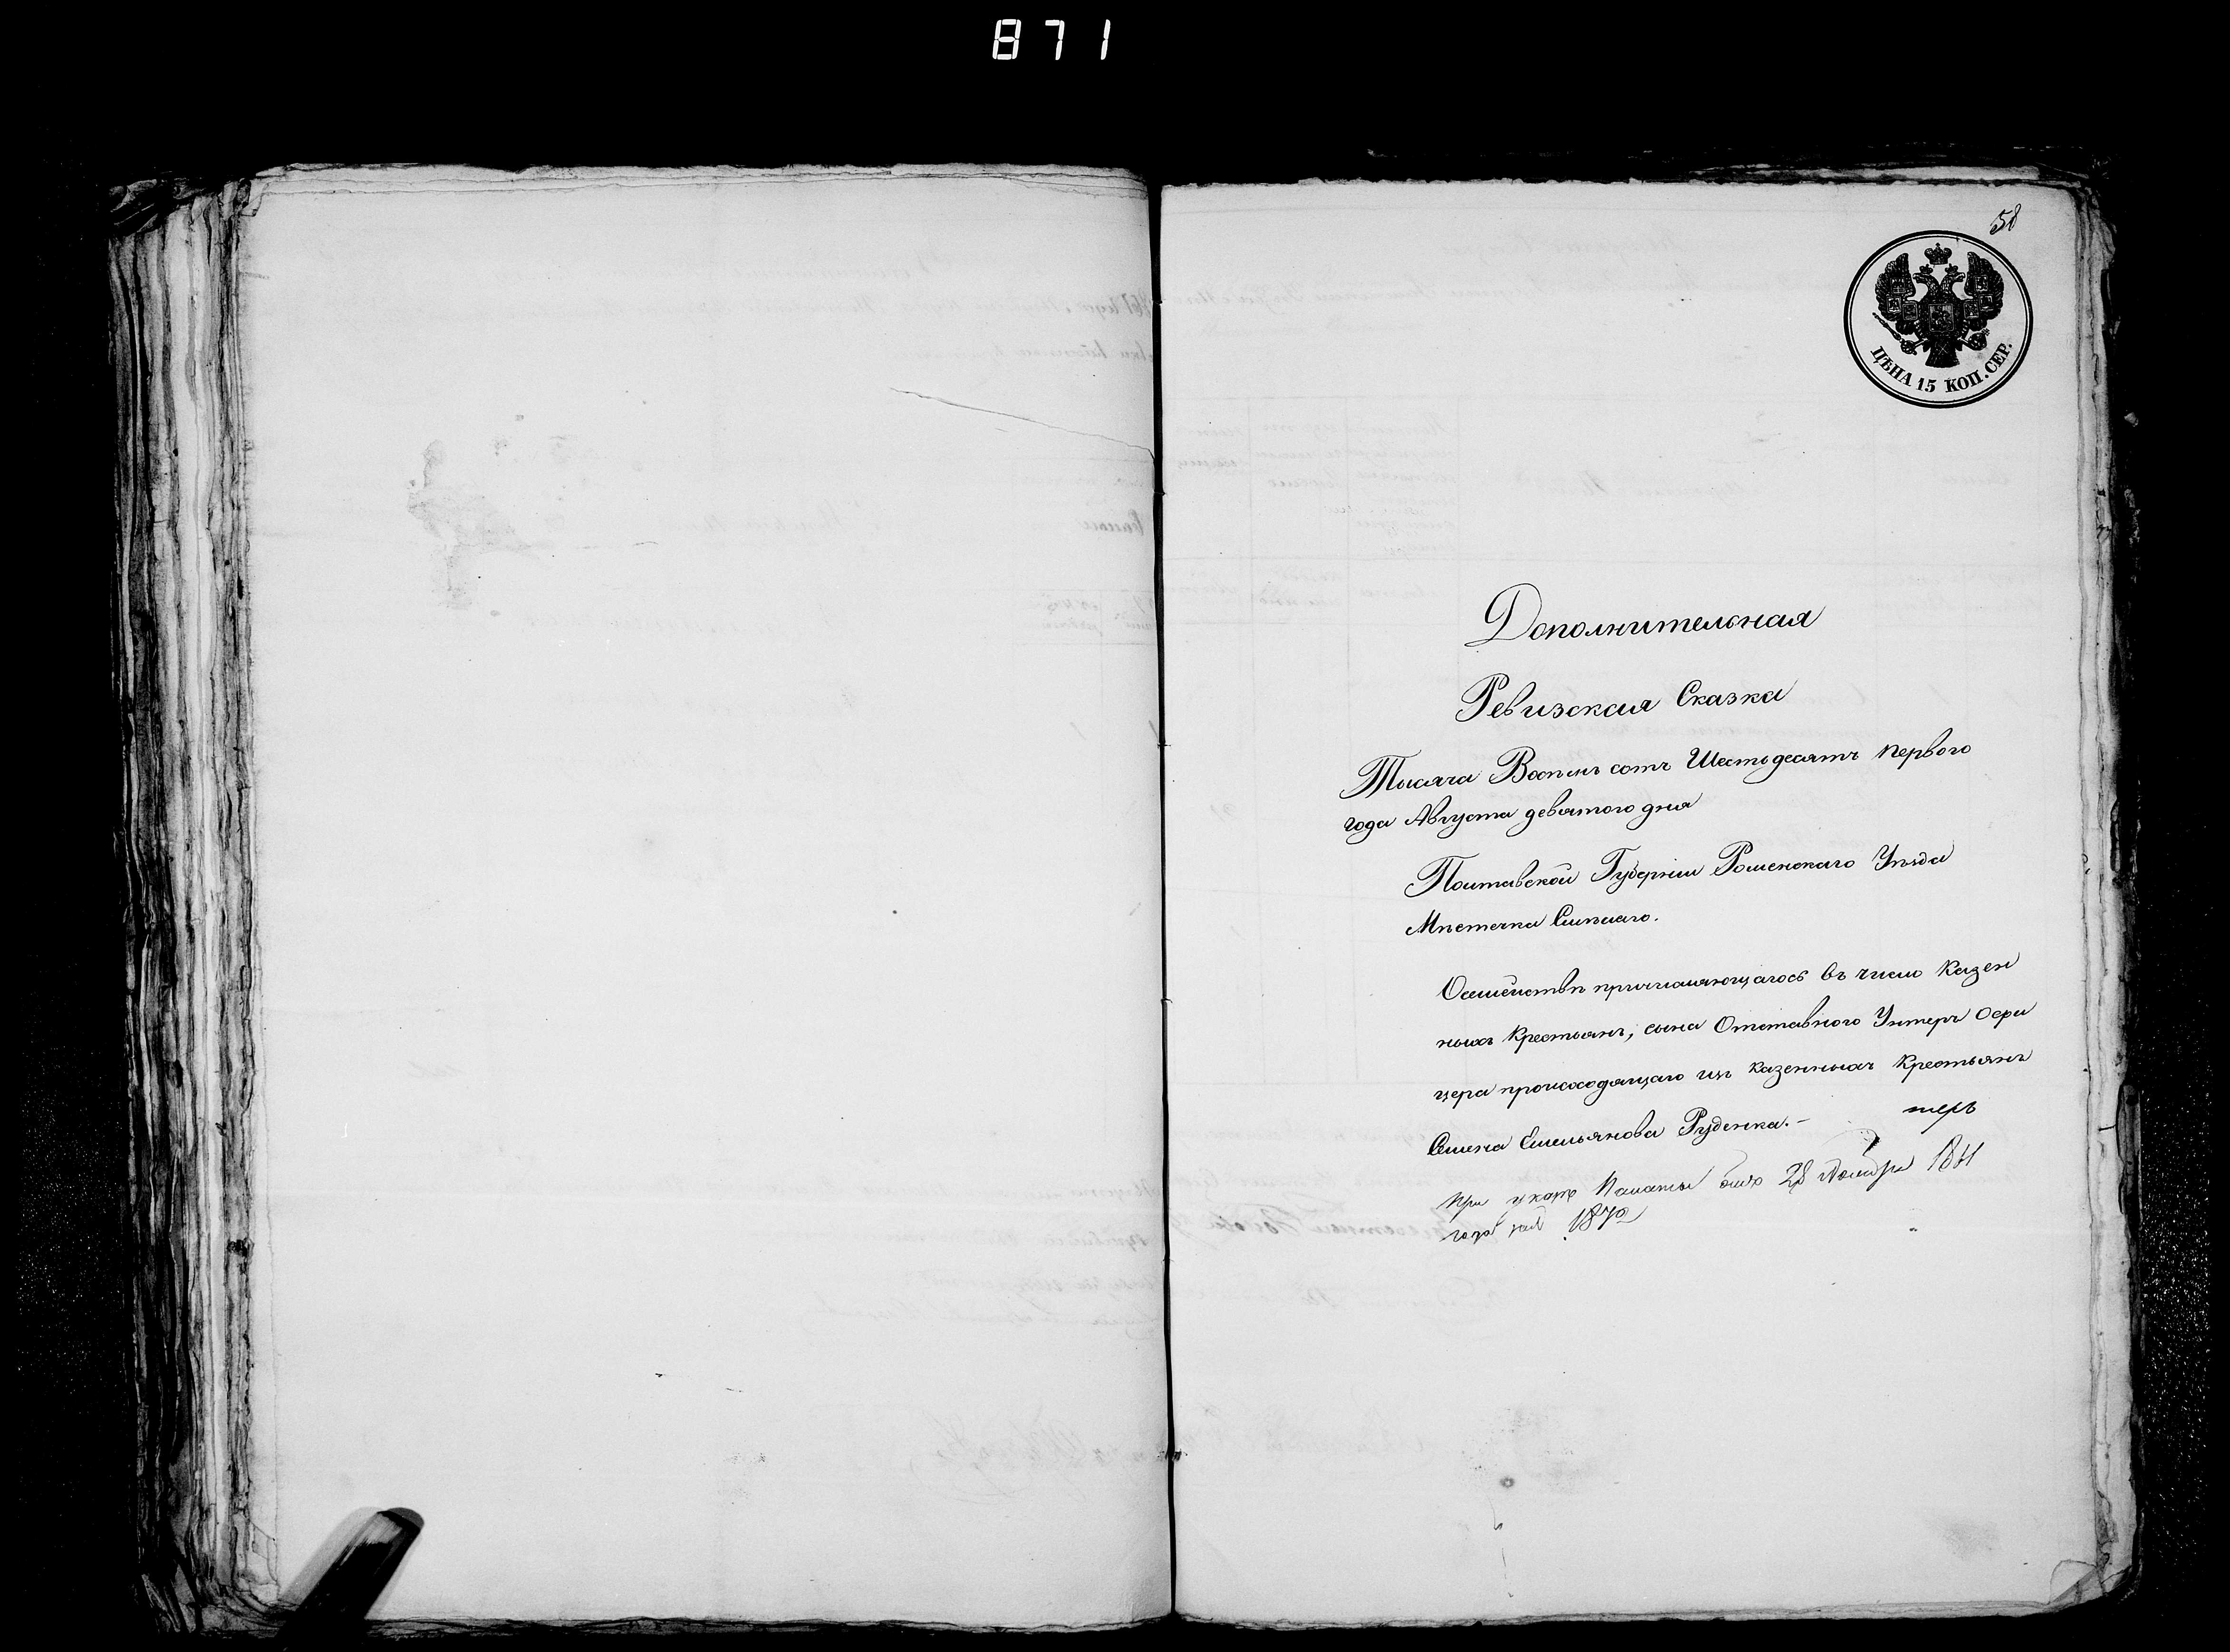 871
58
ЦѢНА 15 КОП. СЕР.
Дополнительная
Ревизская Сказка
Тысяча Восемь сотъ Шестьдесятъ первого
года Августа девятого дня
Полтавской Губерніи Роменскаго Уѣзда
Мѣстечка Смѣлаго.
О семействѣ причисляющагось въ число Казен
ныхъ Крестьянъ, сына Отставного Унтеръ Офи
цера происходящаго изъ Казенныхъ Крестьянъ
Семена Емельянова Руденка.-
При указѣ Палаты отъ 28 1861
года за № 1870